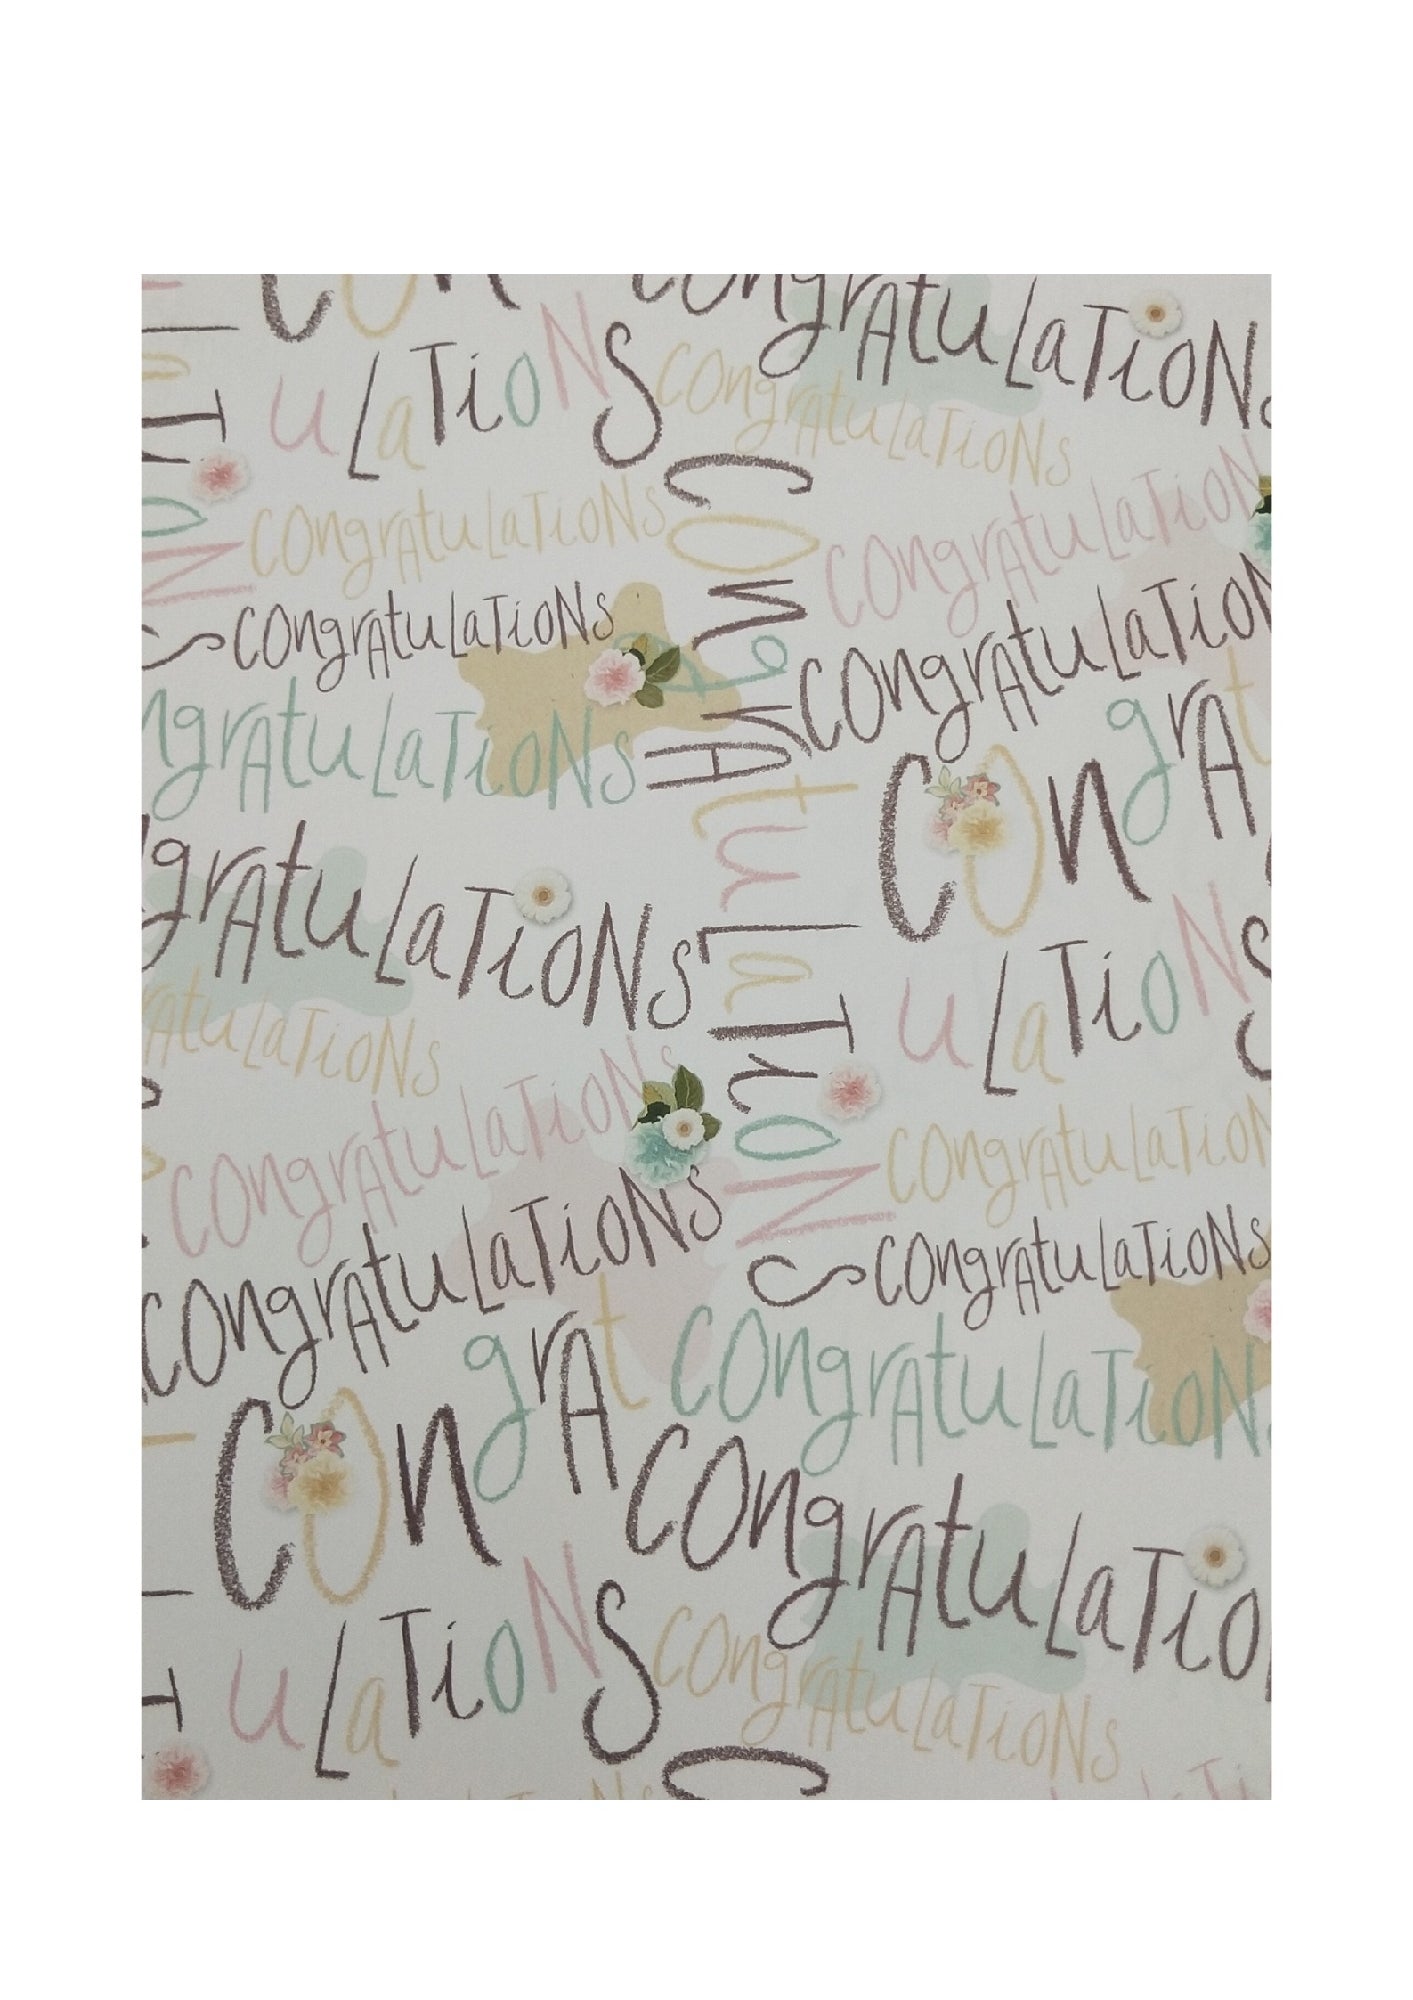 Con
CongratulaTioNS
ulaTioNS
CongratulaTioNS
CongratulaTioN
CongratulaTioNS
CongratulaTioNS
CongratulaTioN
ngratulaTioNS
CongratulaTioNS
Congrat
ulaTioNS
gratulaTioNS
ratulaTioNS
CongratulaTioNS
CongratulaTioN
CongratulaTioNS
CongratulaTioNS
CongratulaTioNS
Congrat
ulaTioNS
CongratulaTio
CongratulaTioNS